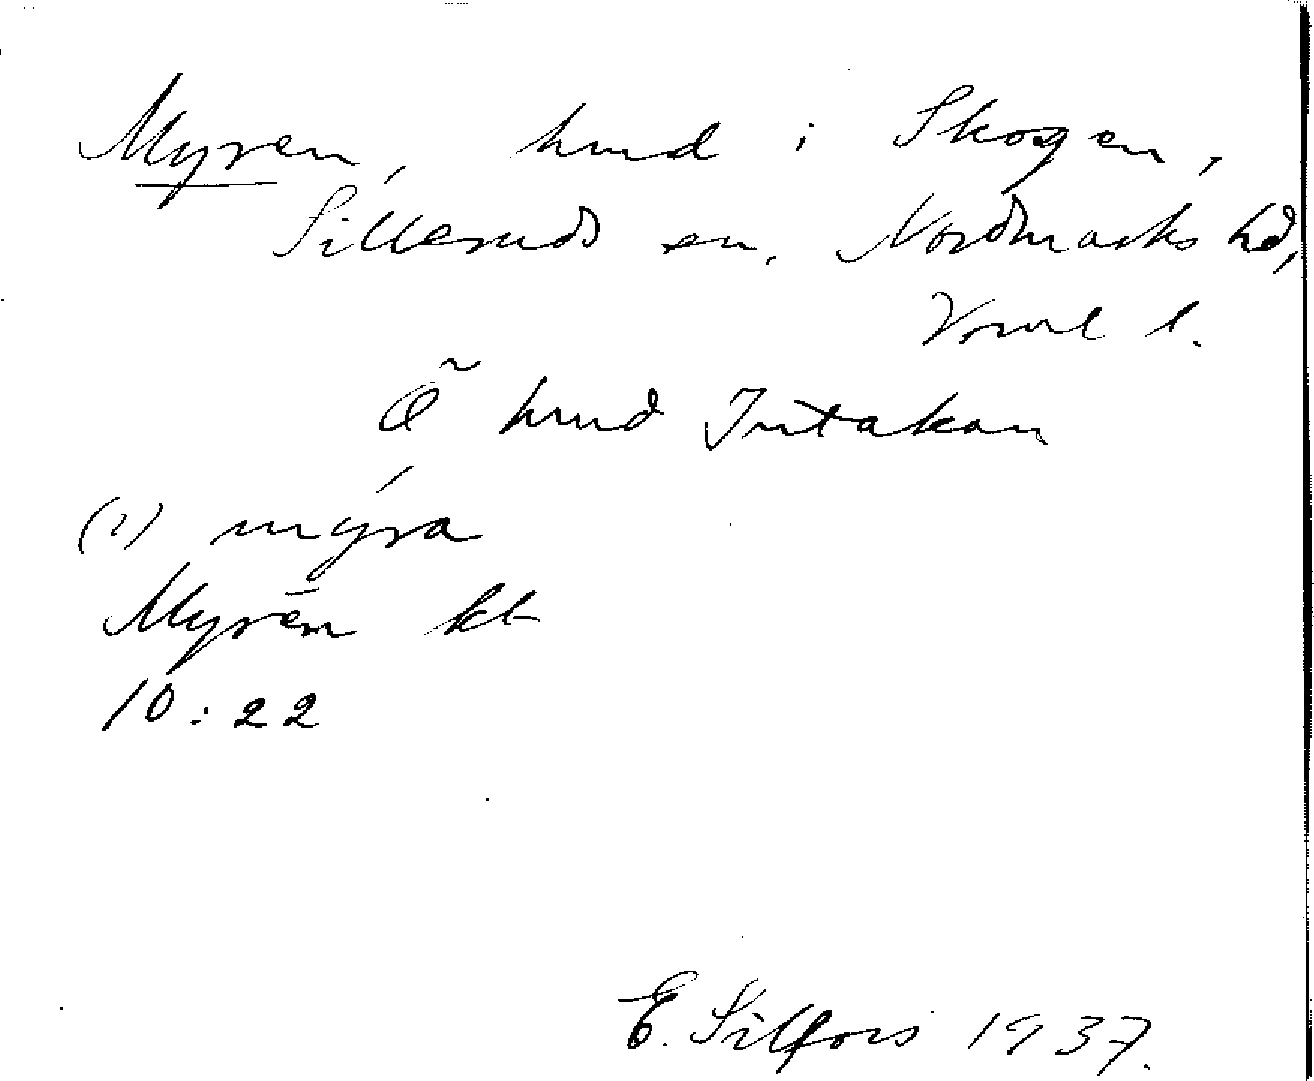 Myren, hmd i Skogen,
Silleruds sn, Nordmarks hd,
Vrml l.
Ö hmd Intakan
(i) myra
Myrēn kt
10:22
E. Silfors 1937.